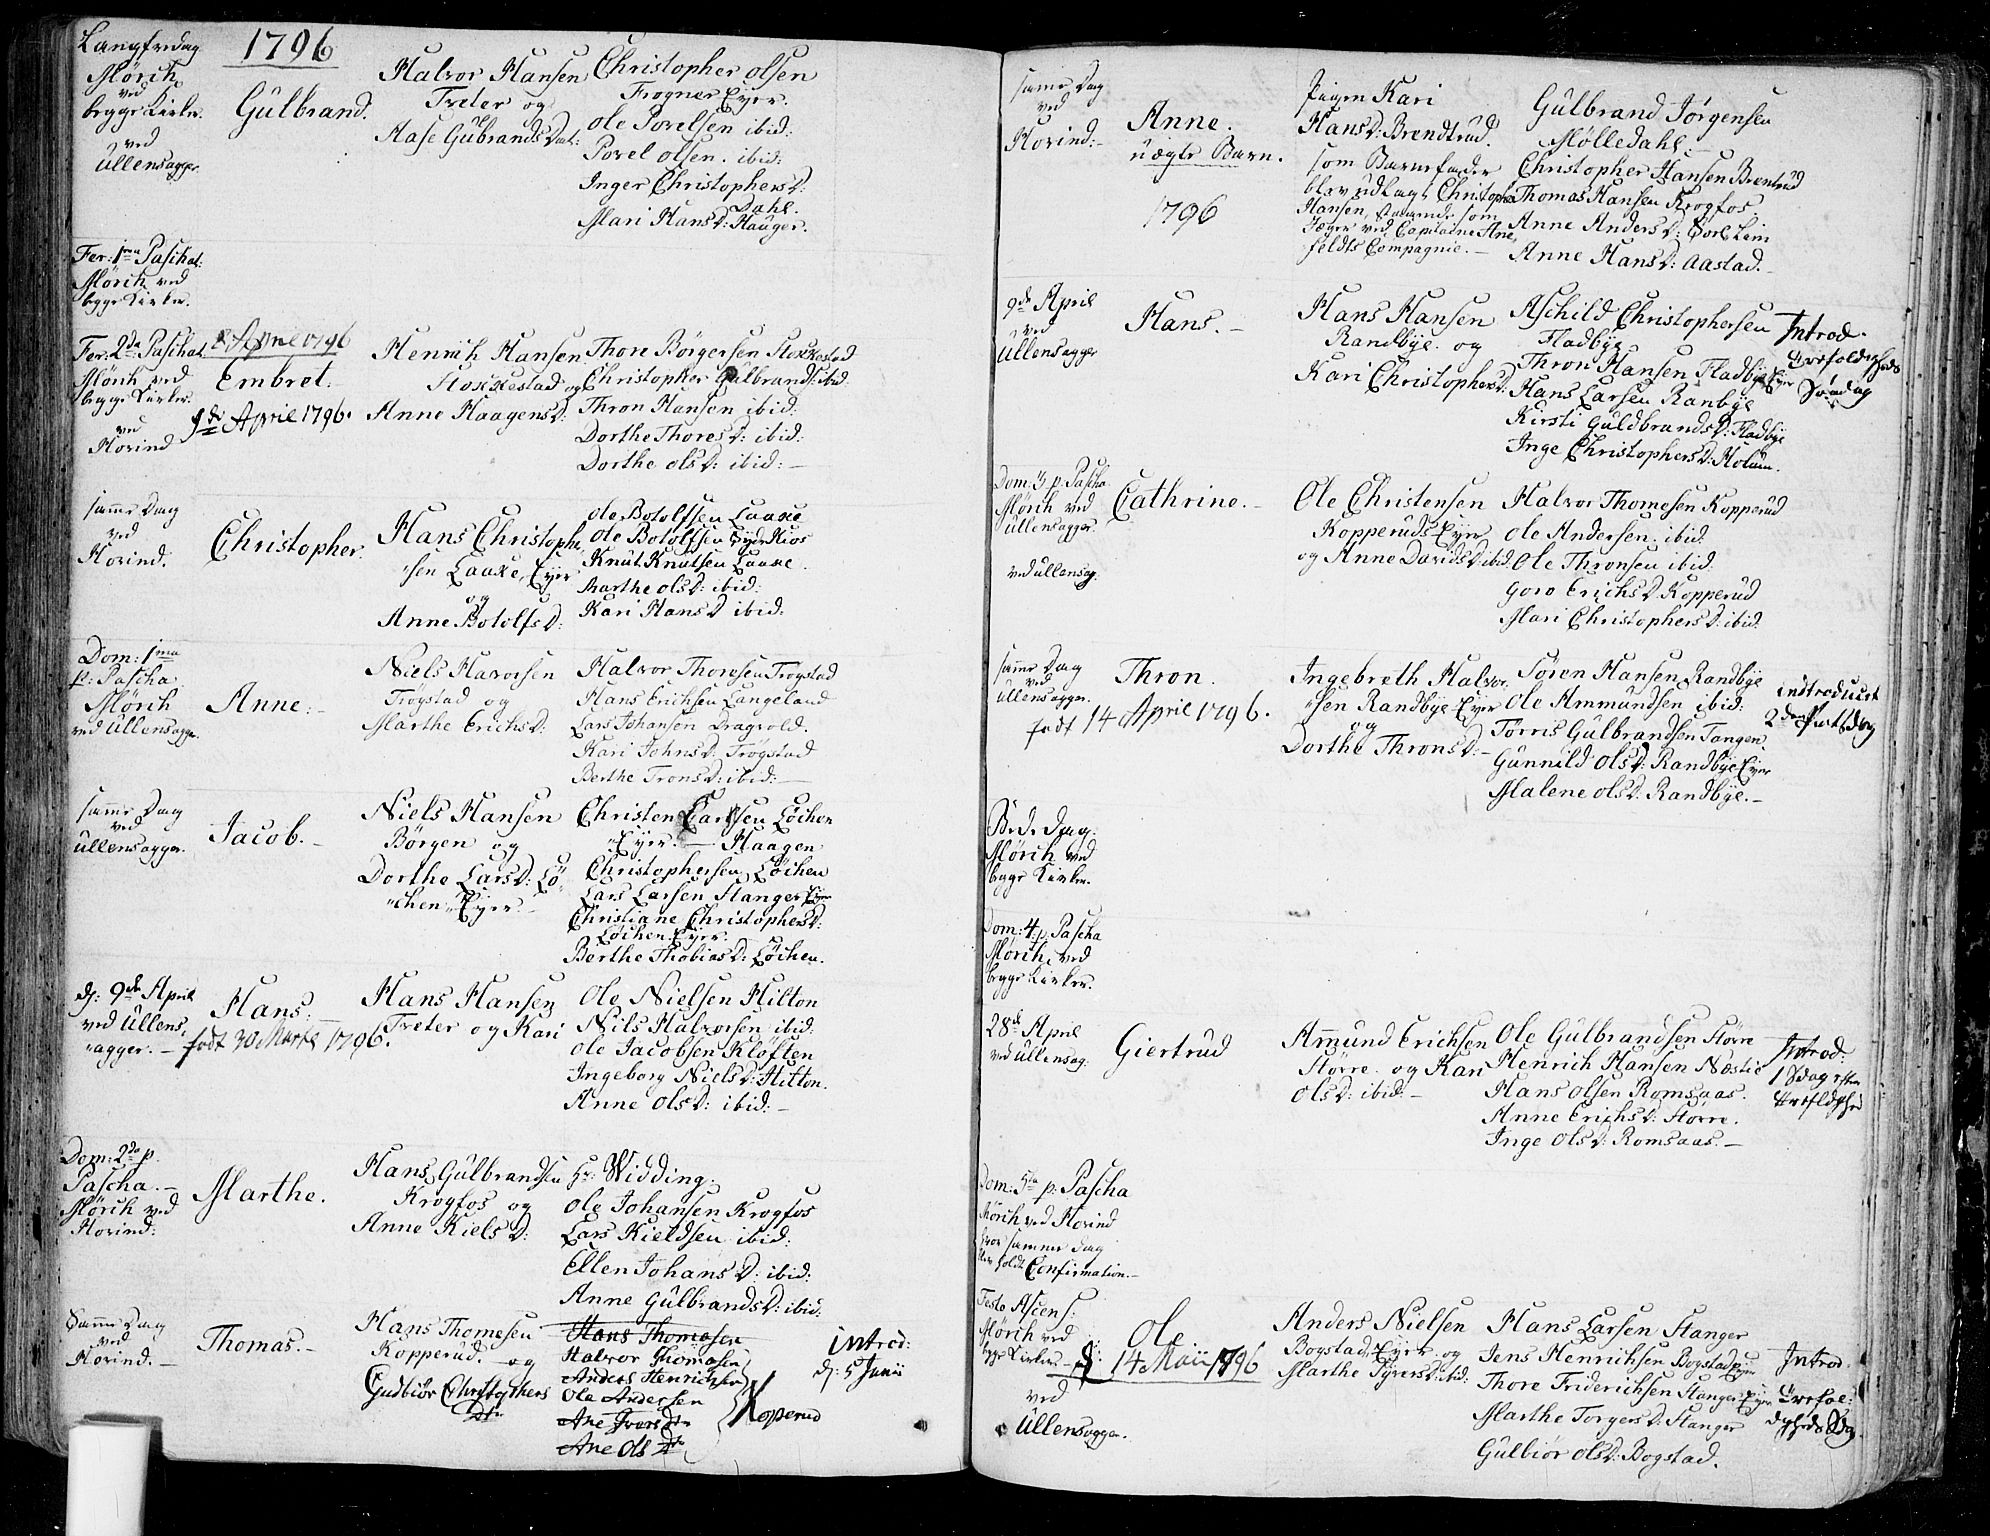 1796
Langfredag
Mörch
ved
begge Kirker.
ved
Ullensagger
Gulbrand.
Halvor Hansen
Treter og
Aase GulbrandsDat:
Christopher Olsen
Frogner Eyer.
Ole Povelsen ibid:
Povel Olsen. ibid:
Inger ChristophersD:
Dahl.
Mari HansD: Hauger.
Fer: 1ma Paschat:
Mörch ved
begge Kirker.
Fer: 2da Paschat.
Mörch ved
begge Kirker.
ved
Horind
April 1796
Embret.
April 1796.
Henrich Hansen
Stoxxestad og
Anne HaagensD:
Thore Börgersen Stoxxestad
Christopher Gulbrands: ibid:
Thron Hansen ibid:
Dorthe ThoresD: ibid:
Dorthe OlsD: ibid:
samme Dag
ved
Horind.
Christopher.
Hans Christopher
sen Laaxe, Eyer
og
Anne BotolfsD:
Ole Botolfsen Laaxe
Ole Botolfsen
Knut Knutsen Laaxe.
Marthe OlsD: ibid:
Kari HansD ibid:
Dom: 1ma
p: Pascha
Mörch
ved Ullensagger.
Anne.
Niels Havorsen
Tröystad og
Marthe ErichsD:
Halvor Thoresen Tröystad
Hans Erichsen Langeland
Lars Johansen Dragvold.
Kari JohnsD: Trogstad
Berthe TronsD: ibid:
samme Dag
ved
Ullensagger.
Jacob.
Niels Hansen
Börgen og
Dorthe LarsD: Lö
chen Eyer.
Christen Larssen Löchen
Eyer. Haagen
Christophersen Löchen
Lars Larsen Stanger Eyer
Christiane ChristophersD:
Löchen Eyer.
Berthe ThobiasD: Löchen.
d: 9de April
ved Ullens
agger.
Hans.
födt 30 Martii 1796.
Hans Hansen
Treter og Kari
Ole Nielsen Hilton
Nils Halvorsen ibid.
Ole Jacobsen Klöften
Ingeborg NielsD: Hilton.
Anne OlsD: ibid:
Dom: 2da p.
Pascha.
Mörch ved
Horind:
Marthe.
Hans Gulbrandsen
Krogfos og
Anne KielsD:
Hr: Widding.
Ole Johansen Krogfos
Lars Kieldsen ibid:
Ellen JohansD: ibid:
Anne GulbrandsD: ibid:
Samme Dag
ved
Horind.
Thomas.
Hans Thomesen
Kopperud. og
Gudbiör Christophers
Dtr
Hans Thomasen
Halvor Thomasen
Anders Henrichsen
Ole Andersen
Ane IversDtr
Ane OlsDtr
Koperud
introd:
d: 5 Junii
samme Dag
ved
Horind:
Anne.
uægte Barn.
1796
Pigen Kari
HansD: Brendtrud.
som Barnefader
blev udlagt Christopher
Hansen, staaende som
Jæger ved Capitaine
feldts Compagnie.
Gulbrand Jörgensen
Mölledahl.
Christopher Hansen Brentrud
Thomas Hansen Krogfos
Anne AndersD:
Anne HansD: Aastad.
9de April
ved
Ullensagger
Hans.
Hans Hansen
Randbye. og
Kari ChristophersD.
Aschild Christophersen
Fladbye
Thron Hansen Fladbye Eyer
Hans Larsen Ranbye
Kirsti GuldbrandsD: Fladbye
Inge ChristophersD: Holum.
Introd.
Trefoldigheds
Söndag
Dom: 3 p: Pascha
Mörch ved
Ullensagger.
ved Ullensag.
Cathrine.
Ole Christensen
Kopperuds Eyer
og Anne DavidsD: ibid
Halvor Thomesen Kopperud
Ole Andersen. ibid:
Ole Thronsen ibid.
Goro ErichsD Kopperud
Mari ChristophersD: ibid:
samme Dag
ved
Ullensagger.
Thron.
födt 14 April 1796.
Ingebreth Halvor
sen Randbye Eyer
og
Dorthe ThronsD:
Sören Hansen Randbye
Ole Ammundsen ibid:
Törris Gulbrandsen Tangen.
Gunnild OlsD: Randbye Eyer
Malene OlsD: Randbye.
indtroducert
2den Dag
Bede Dag.
Mörch ved
begge Kirker.
Dom: 4: p: Pascha
Mörch ved
begge Kirker.
28de April
ved Ullensag:
Giertrud
Ammund Erichsen
Större. og Kari
OlsD: ibid:
Ole Gulbrandsen Större
Henrich Hansen Næstie
Hans Olsen Romsaas.
Anne ErichsD: Större.
Inge OlsD: Romsaas.
Introd:
1 Sdag efter
Dom: 5ta p: Pascha
Mörch ved Horind
hvor samme dag
blev holdt Confirmation.
Festo Ascens:
Mörch ved
begge Kirker.
ved
Ullensagger.
Ole
d: 14 Maii 1796
Anders Nielsen
Bogstad Eyer og
Marthe ibid:
Hans Larsen Stanger
Jens Henrichsen Bogstad Eyer
Thore Friderichsen Stanger Eyer
Marthe TorgersD: Stanger
Gulbiör OlsD: Bogstad.
Introd.
Trefol:
digheds Sdag